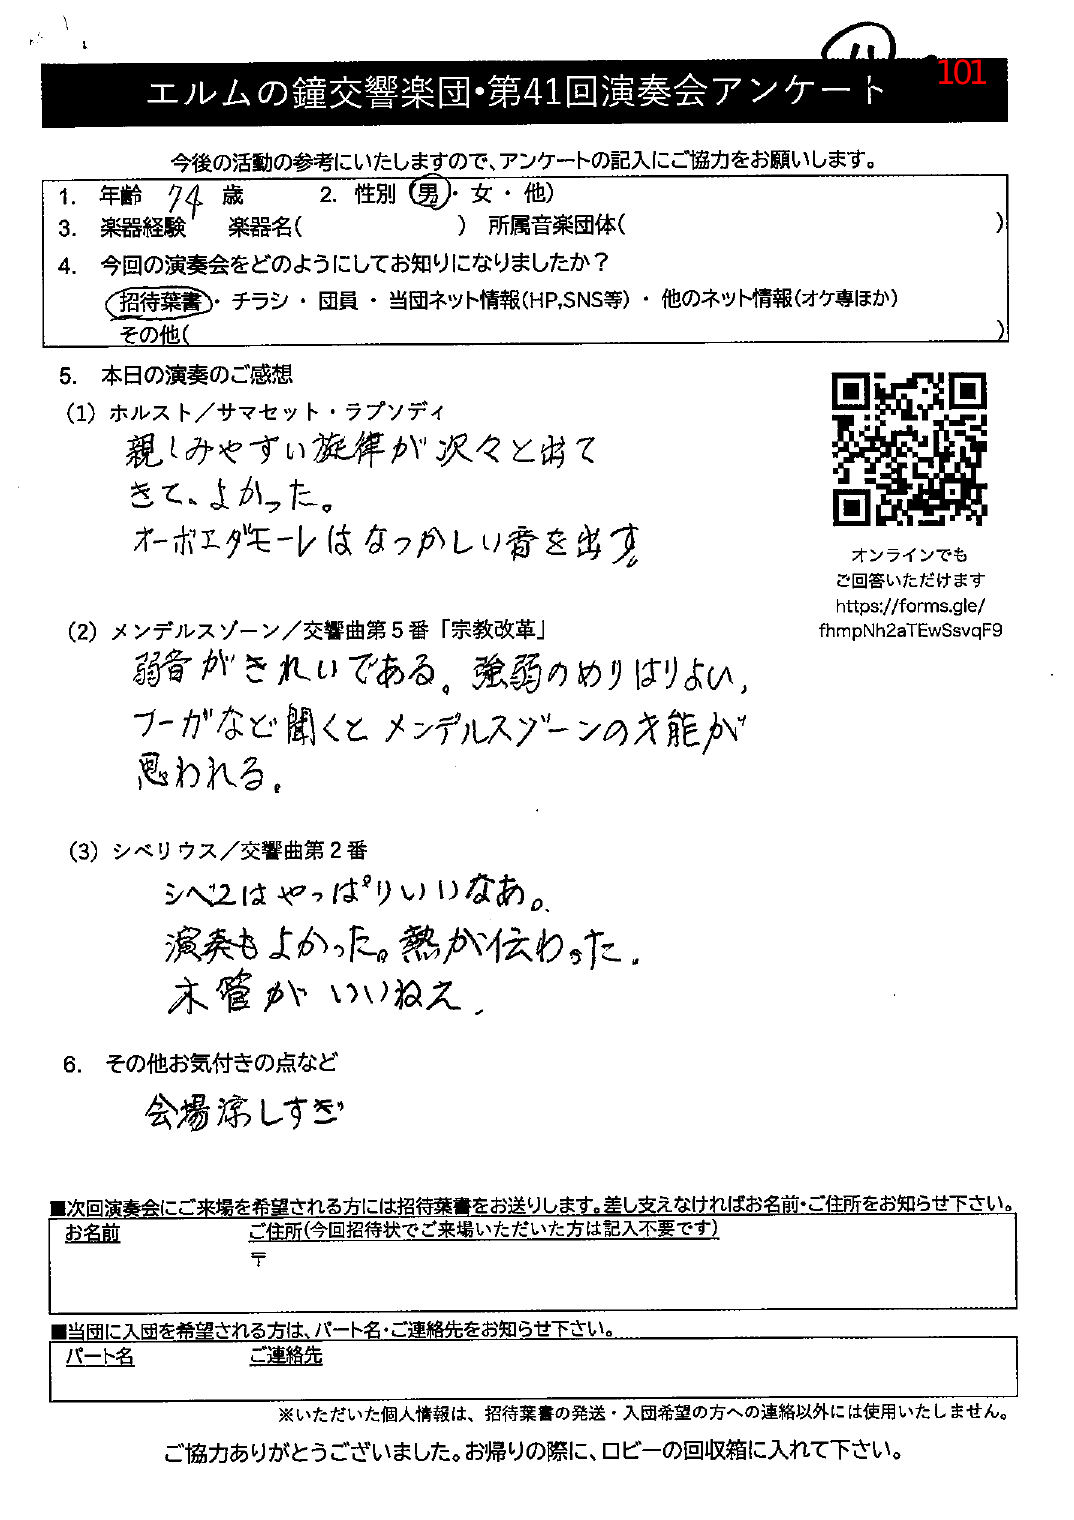 101
エルムの鐘交響楽団・第41回演奏会アンケート
今後の活動の参考にいたしますので、アンケートの記入にご協力をお願いします。
1. 年齢 74 歳 2. 性別 (男・女・他)
3. 楽器経験 楽器名( ) 所属音楽団体( )
4. 今回の演奏会をどのようにしてお知りになりましたか？
招待葉書・チラシ・団員・当団ネット情報(HP,SNS等)・他のネット情報(オケ専ほか)
その他( )
5. 本日の演奏のご感想
(1) ホルスト／サマセット・ラプソディ
親しみやすい旋律が沢々と出て
きて、よかった。
オーボエダモーレはなつかしい音を出す。
オンラインでも
ご回答いただけます
https://forms.gle/
fhmpNh2aTEwSsvqF9
(2) メンデルスゾーン／交響曲第５番「宗教改革」
弱音がきれいである。強弱のめりはりよい、
フーガなど聞くとメンデルスゾーンの才能が
思われる。
(3) シベリウス／交響曲第２番
シベ2はやっぱりいいなあ。
演奏もよかった。熱が伝わった.
木管がいいねえ.
6. その他お気付きの点など
会場涼しすぎ
■次回演奏会にご来場を希望される方には招待葉書をお送りします。差し支えなければお名前・ご住所をお知らせ下さい。
お名前 ご住所(今回招待状でご来場いただいた方は記入不要です)
〒
■当団に入団を希望される方は、パート名・ご連絡先をお知らせ下さい。
パート名 ご連絡先
※いただいた個人情報は、招待葉書の発送・入団希望の方への連絡以外には使用いたしません。
ご協力ありがとうございました。お帰りの際に、ロビーの回収箱に入れて下さい。